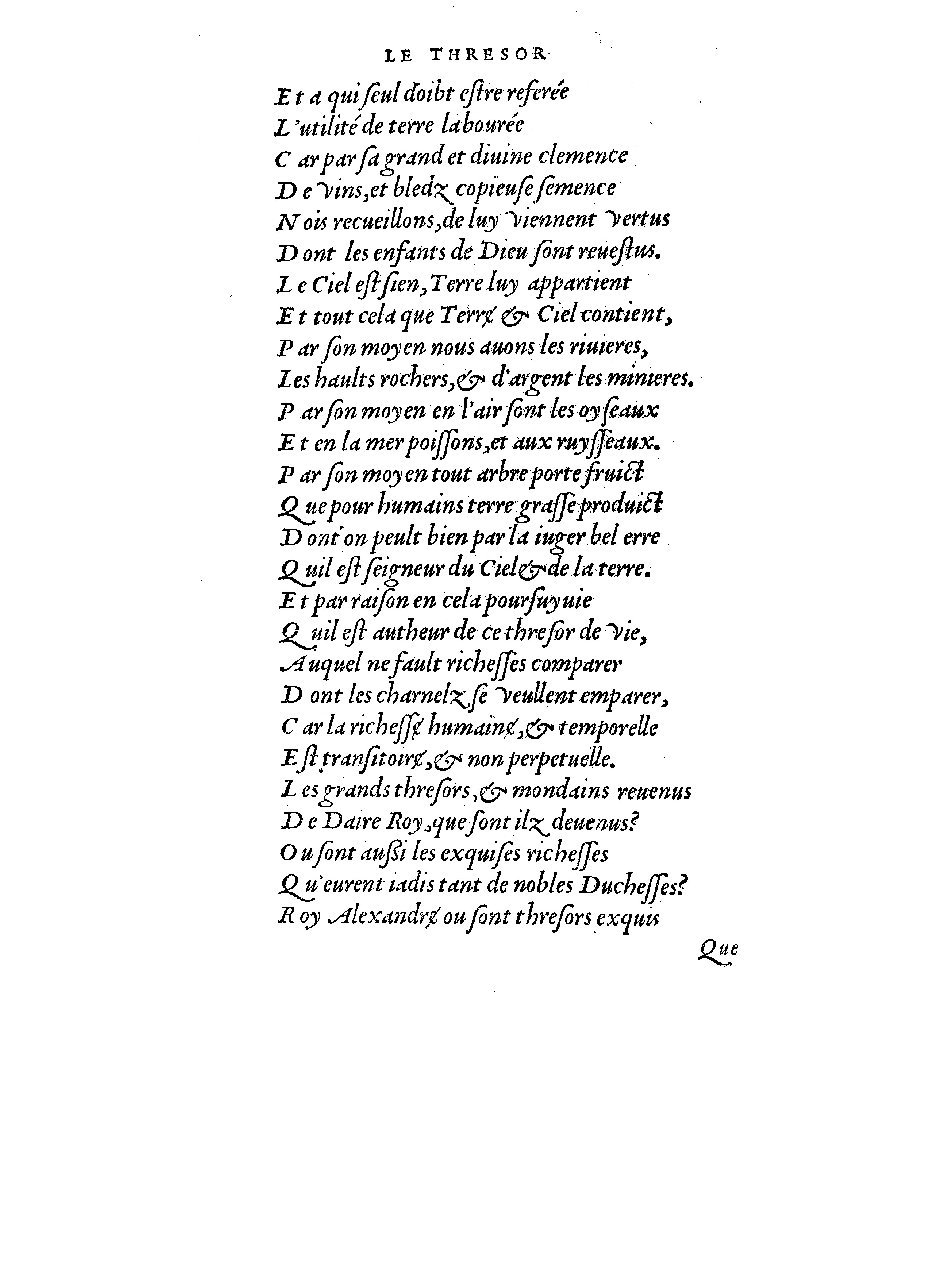 LE THRESOR
Et a qui ſeul doibt eſtre referée
L'utilité de terre labourée
Car par ſa grand et diuine clemence
De vins, et bledz copieuſe ſemence
Nois recueillons, de luy viennent vertus
Dont les enfants de Dieu ſont reueſtus.
Le Ciel eſt ſien, Terre luy appartient
Et tout cela que Terrɇ & Ciel contient,
Par ſon moyen nous auons les riuieres,
Les haults rochers, & d'argent les minieres.
Par ſon moyen en l'air ſont les oyſeaux
Et en la mer poiſſons, et aux ruyſſeaux.
Par ſon moyen tout arbre porte fruict
Que pour humains terre graſſe produict
Dont on peult bien par la iuger bel erre
Quil eſt ſeigneur du Ciel & de la terre.
Et par raiſon en cela pourſuyuie
Quil eſt autheur de ce threſor de vie,
Auquel ne fault richeſſes comparer
Dont les charnelz ſe veullent emparer,
Car la richeſſɇ humainɇ, & temporelle
Eſt tranſitoirɇ, & non perpetuelle.
Les grands threſors, & mondains reuenus
De Daire Roy, que ſont ilz deuenus?
Ou ſont auſſi les exquiſes richeſſes
Qu'eurent iadis tant de nobles Ducheſſes?
Roy Alexandrɇ ou ſont threſors exquis
Que